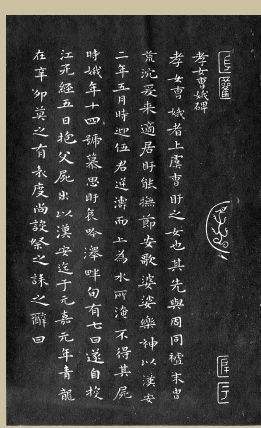 孝女曹娥碑
孝女曹娥者上虞曹盱之女也其先與周同祖末胄
荒沉爰来適居盱能撫節安歌婆娑樂神以漢安
二年五月時迎伍君逆濤而上為水所淹不得其屍
時娥年十四號慕思盱哀吟澤畔旬有七日遂自投
江死經五日抱父屍出以漢安迄于元嘉元年青龍
在辛卯莫之有表度尚設祭之誄之辭曰